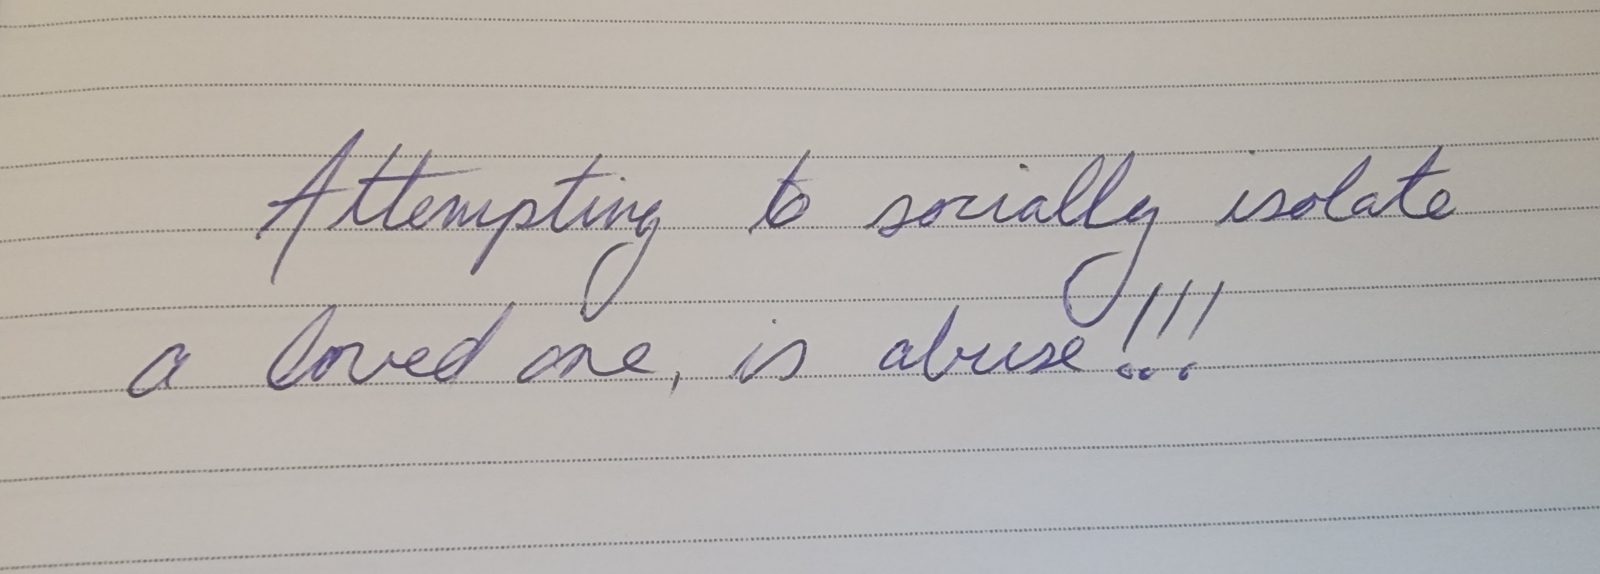 Attempting to socially isolate
a loved one, is abuse!!!